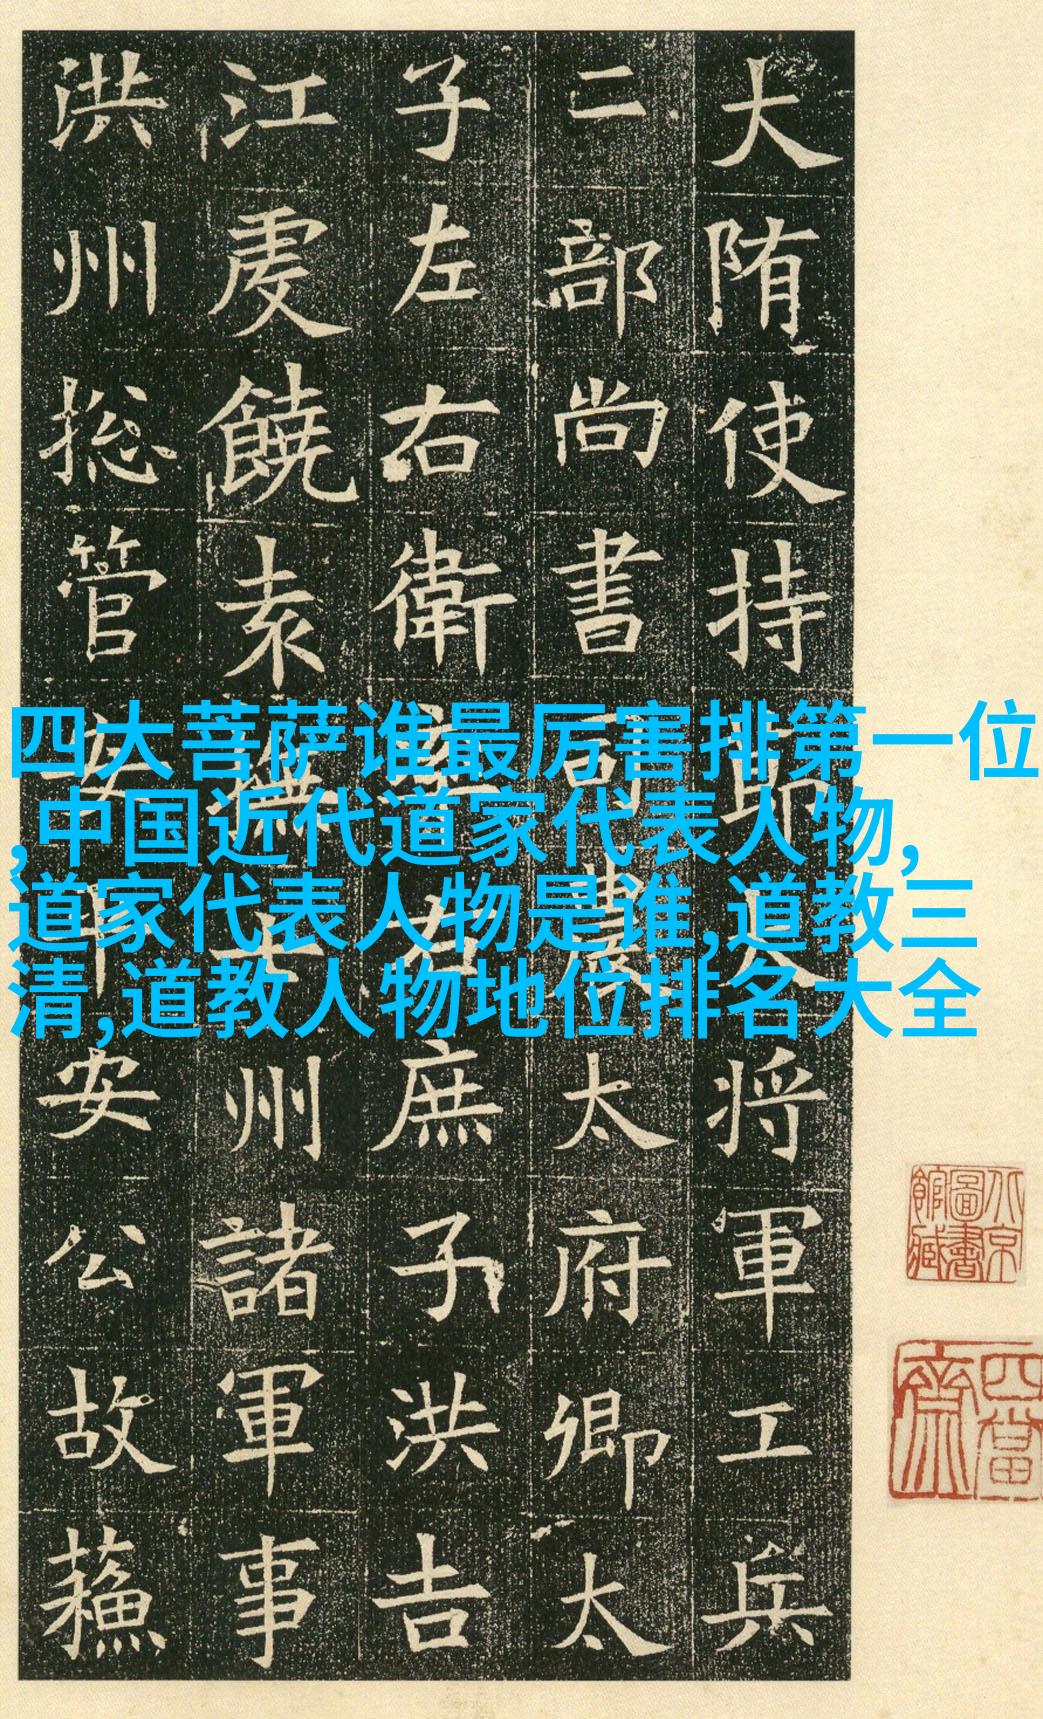 四大菩萨谁最厉害排第一位
,中国近代道家代表人物,
道家代表人物是谁,道教三
清,道教人物地位排名大全
大陏使持将軍工兵
二部尚書農太府卿太
子左右衛右庶子洪吉
江虔饒袁撫州諸軍事
洪州捴管安安公故蘓
北京圖書館藏
四當齋